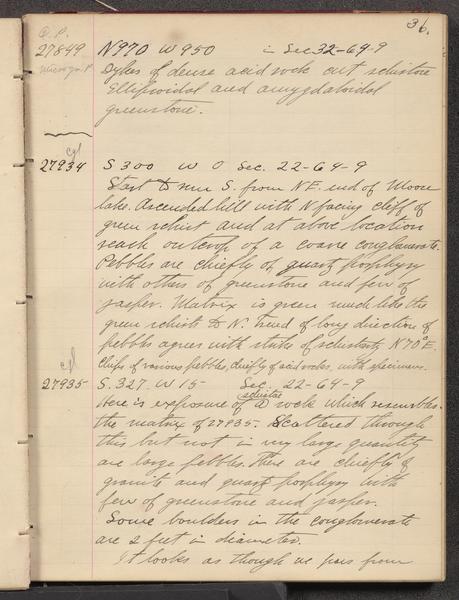 36.
Q.P.
27849 N970 W950 in Sec. 32-64-9
Dykes of dense acid rock cut schistose
Ellipsoidal and amygdaloidal
greenstone.
cgl
27934 S300 W 0 Sec. 22-64-9
Start to run S. from NE. end of Moose
lake. Ascended hill with N facing cliff of
green schist and at above location
reach outcrop of a coarse conglomerate.
Pebbles are chiefly of quartz porphyry
with others of greenstone and few of
jasper. Matrix is green much like the
green schists to N. Trend of long direction of
pebbles agrees with strike of schistosity N70°E.
Chips of various pebbles, chiefly of acid rocks, with specimens.
cgl
27935 S.327. W15 Sec. 22-64-9
schistose
Here is exposure of a rock which resembles
the matrix of 27935. Scattered through
this but not in very large quantity
are large pebbles. These are chiefly of
granite and quartz porphyry with
few of greenstone and jasper.
Some boulders in the conglomerate
are 2 feet in diameter.
It looks as though we pass from